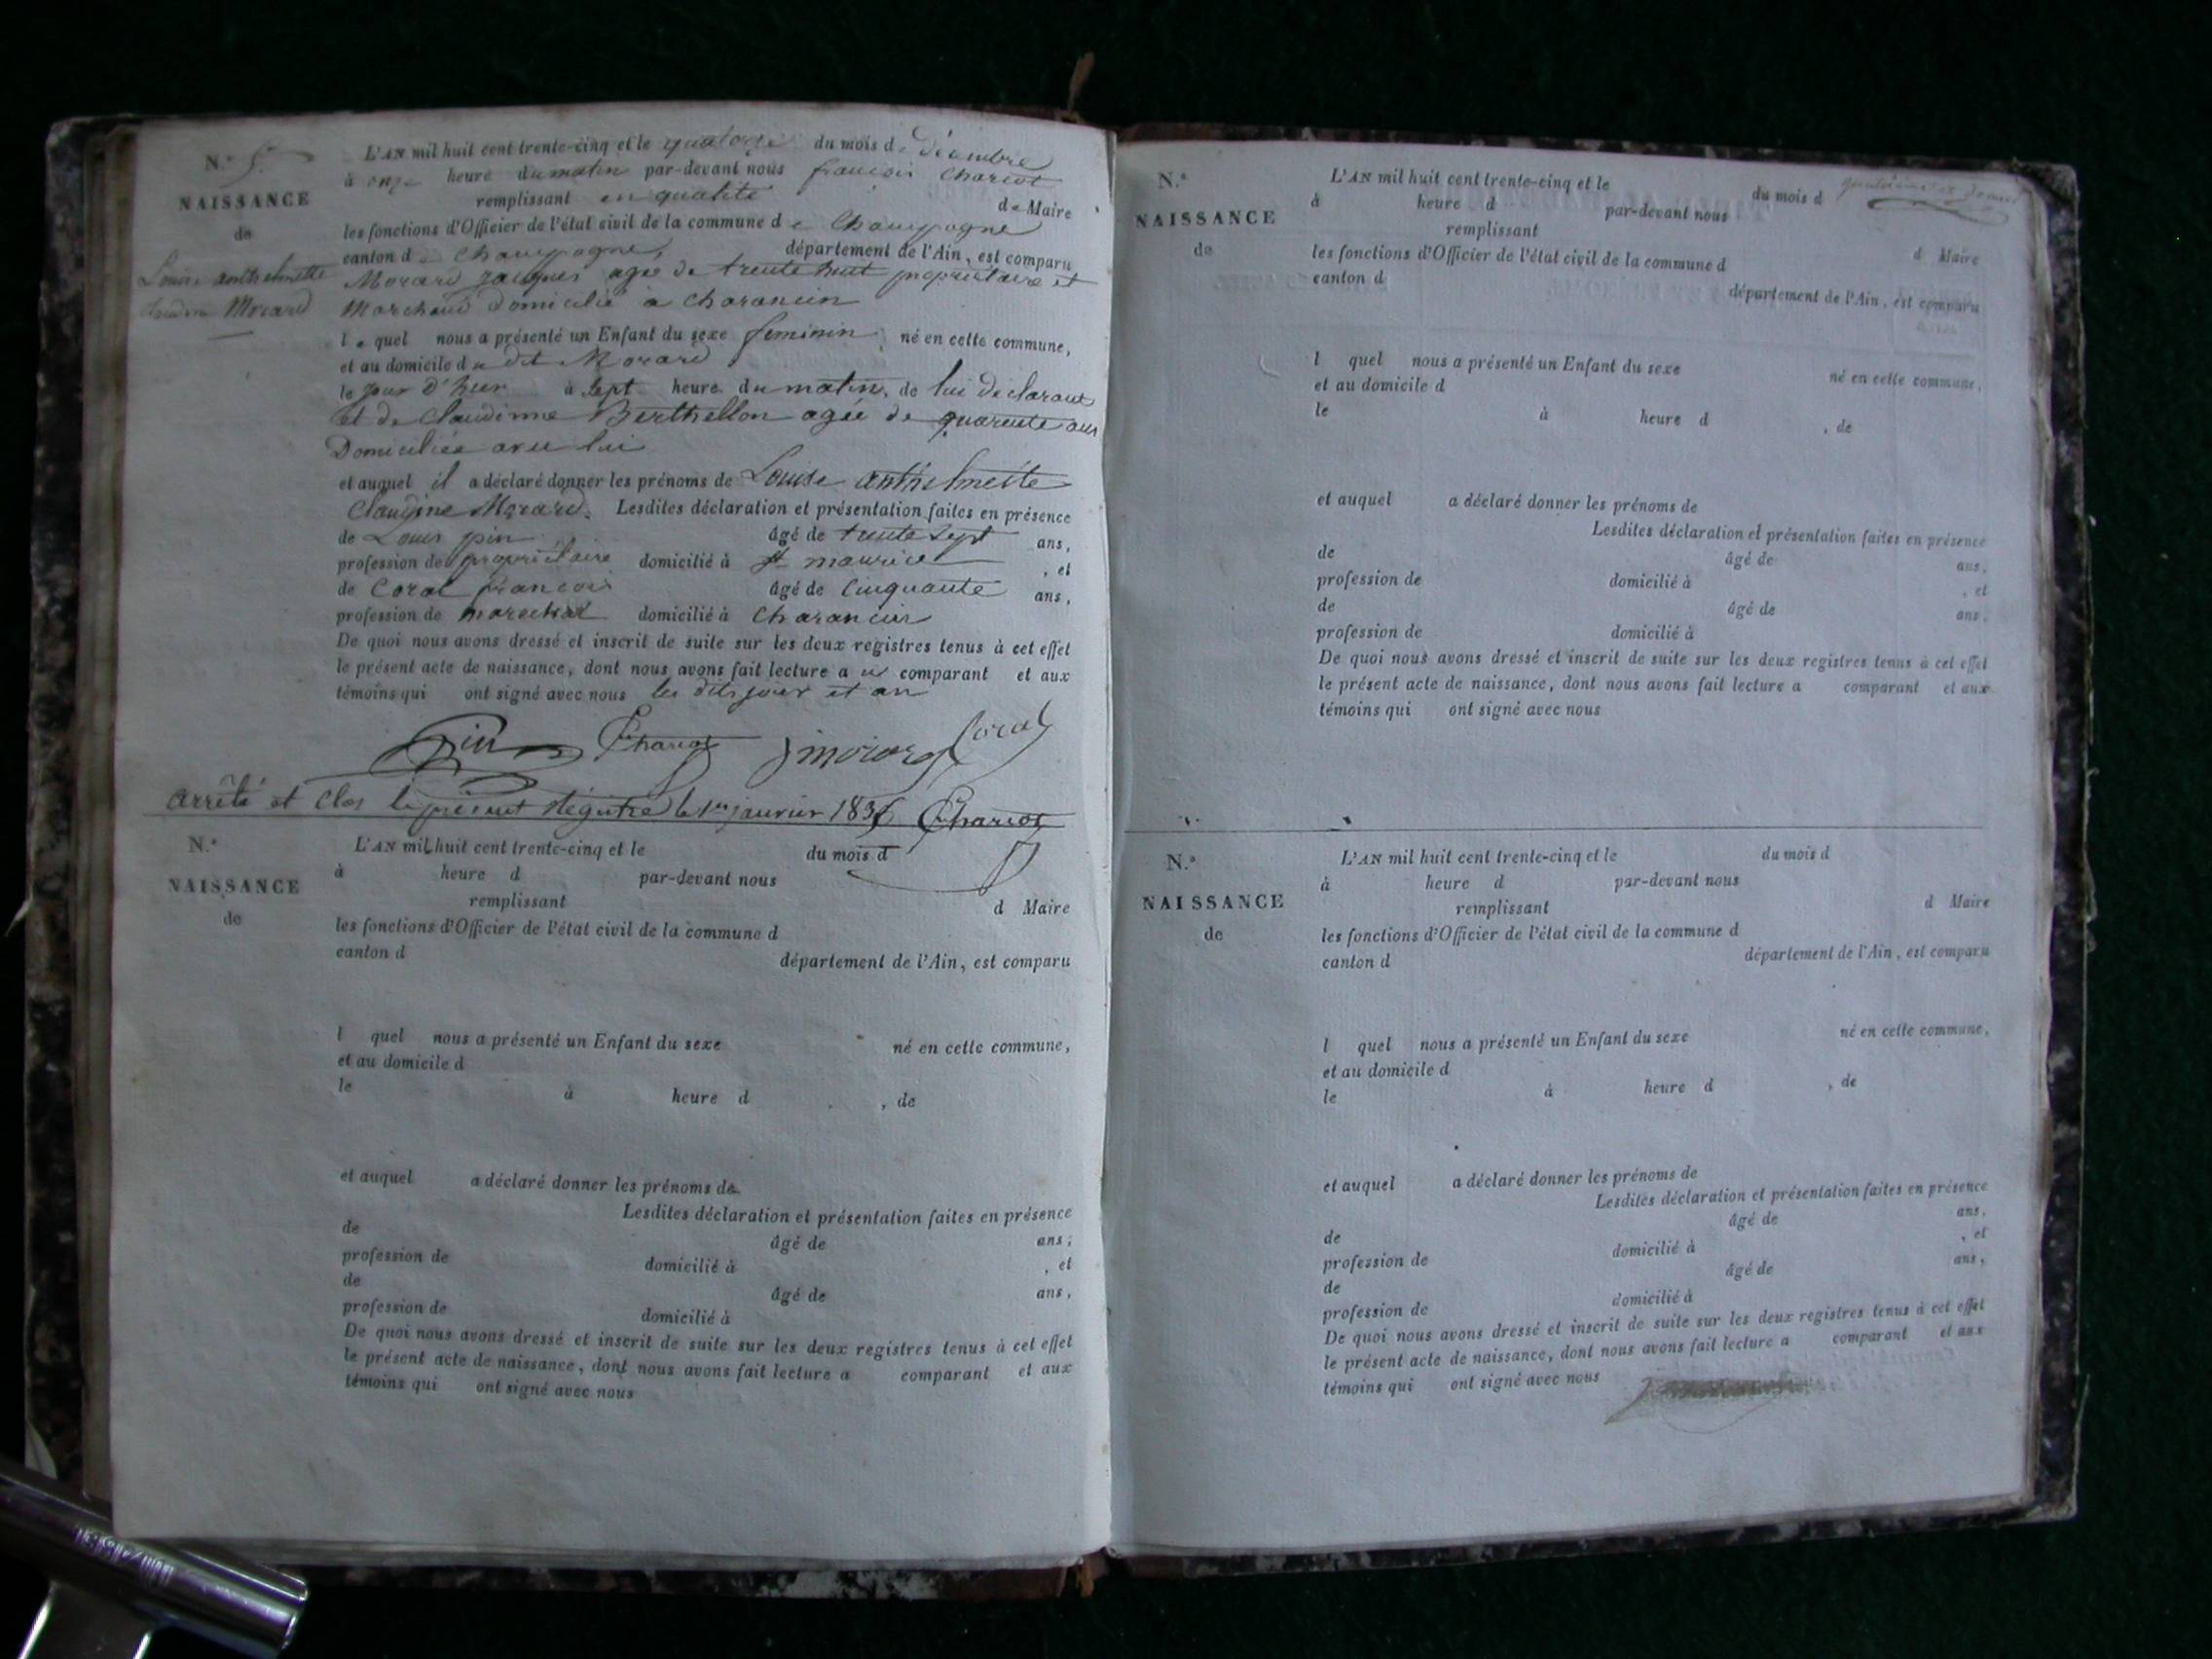 N.° 5.
NAISSANCE
de
Louise anthelmette
Claudine Morard
L'AN mil huit cent trente-cinq et le quatorze du mois de décembre
à onze heure du matin par-devant nous francois Chariot
remplissant en qualité de Maire
les fonctions d'Officier de l'état civil de la commune de Champagne
canton de Champagne, département de l'Ain, est comparu
Morard Jacques agée de trente huit propriétaire et
Marchand domicilié a charancin
le quel nous a présenté un Enfant du sexe feminin né en cette commune,
et au domicile du dit Morard
le jour d'hier à sept heure du matin, de lui declarant
et de Claudinne Berthellon agée de quarente ans
Domiciliée avec lui
et auquel il a déclaré donner les prénoms de Louise anthelmette
Claudine Morard. Lesdites déclaration et présentation faites en présence
de Louis pin âgé de trente sept ans,
profession de propriétaire domicilié à St maurice, et
de Coral francois âgé de Cinquante ans,
profession de marechal domicilié à Charancin
De quoi nous avons dressé et inscrit de suite sur les deux registres tenus à cet effet
le présent acte de naissance, dont nous avons fait lecture a comparant et aux
témoins qui ont signé avec nous les dits jour et an
Pin Chariot jmorard Coral
arrêté et Clos le présent Régistre le 1er janvier 1836 Chariot
N.°
NAISSANCE
de
L'AN mil huit cent trente-cinq et le du mois d
à heure d par-devant nous
remplissant d Maire
les fonctions d'Officier de l'état civil de la commune d
canton d département de l'Ain, est comparu
l quel nous a présenté un Enfant du sexe né en cette commune,
et au domicile d
le à heure d , de
et auquel a déclaré donner les prénoms de
Lesdites déclaration et présentation faites en présence
de âgé de ans,
profession de domicilié à , et
de âgé de ans,
profession de domicilié à
De quoi nous avons dressé et inscrit de suite sur les deux registres tenus à cet effet
le présent acte de naissance, dont nous avons fait lecture a comparant et aux
témoins qui ont signé avec nous
N.°
NAISSANCE
de
L'AN mil huit cent trente-cinq et le du mois d
à heure d par-devant nous
remplissant d Maire
les fonctions d'Officier de l'état civil de la commune d
canton d département de l'Ain, est comparu
l quel nous a présenté un Enfant du sexe né en cette commune,
et au domicile d
le à heure d , de
et auquel a déclaré donner les prénoms de
Lesdites déclaration et présentation faites en présence
de âgé de ans,
profession de domicilié à , et
de âgé de ans,
profession de domicilié à
De quoi nous avons dressé et inscrit de suite sur les deux registres tenus à cet effet
le présent acte de naissance, dont nous avons fait lecture a comparant et aux
témoins qui ont signé avec nous
N.°
NAISSANCE
de
L'AN mil huit cent trente-cinq et le du mois d
à heure d par-devant nous
remplissant d Maire
les fonctions d'Officier de l'état civil de la commune d
canton d département de l'Ain, est comparu
l quel nous a présenté un Enfant du sexe né en cette commune,
et au domicile d
le à heure d , de
et auquel a déclaré donner les prénoms de
Lesdites déclaration et présentation faites en présence
de âgé de ans,
profession de domicilié à , et
de âgé de ans,
profession de domicilié à
De quoi nous avons dressé et inscrit de suite sur les deux registres tenus à cet effet
le présent acte de naissance, dont nous avons fait lecture a comparant et aux
témoins qui ont signé avec nous